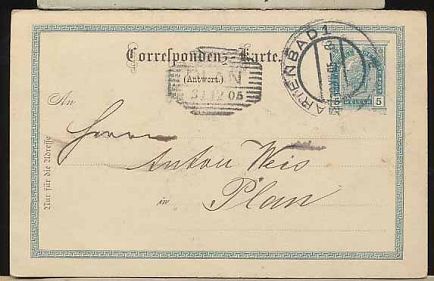 Correspondenz-Karte.
(Antwort.)
31 12 05
MARIENBAD 1
5 5
An
Herrn
Anton Weis
in Plan
Nur für die Adresse